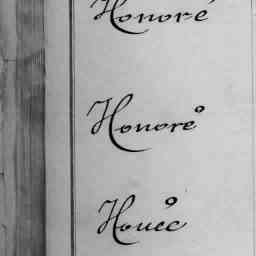 Honoré
Honore°
Houec°